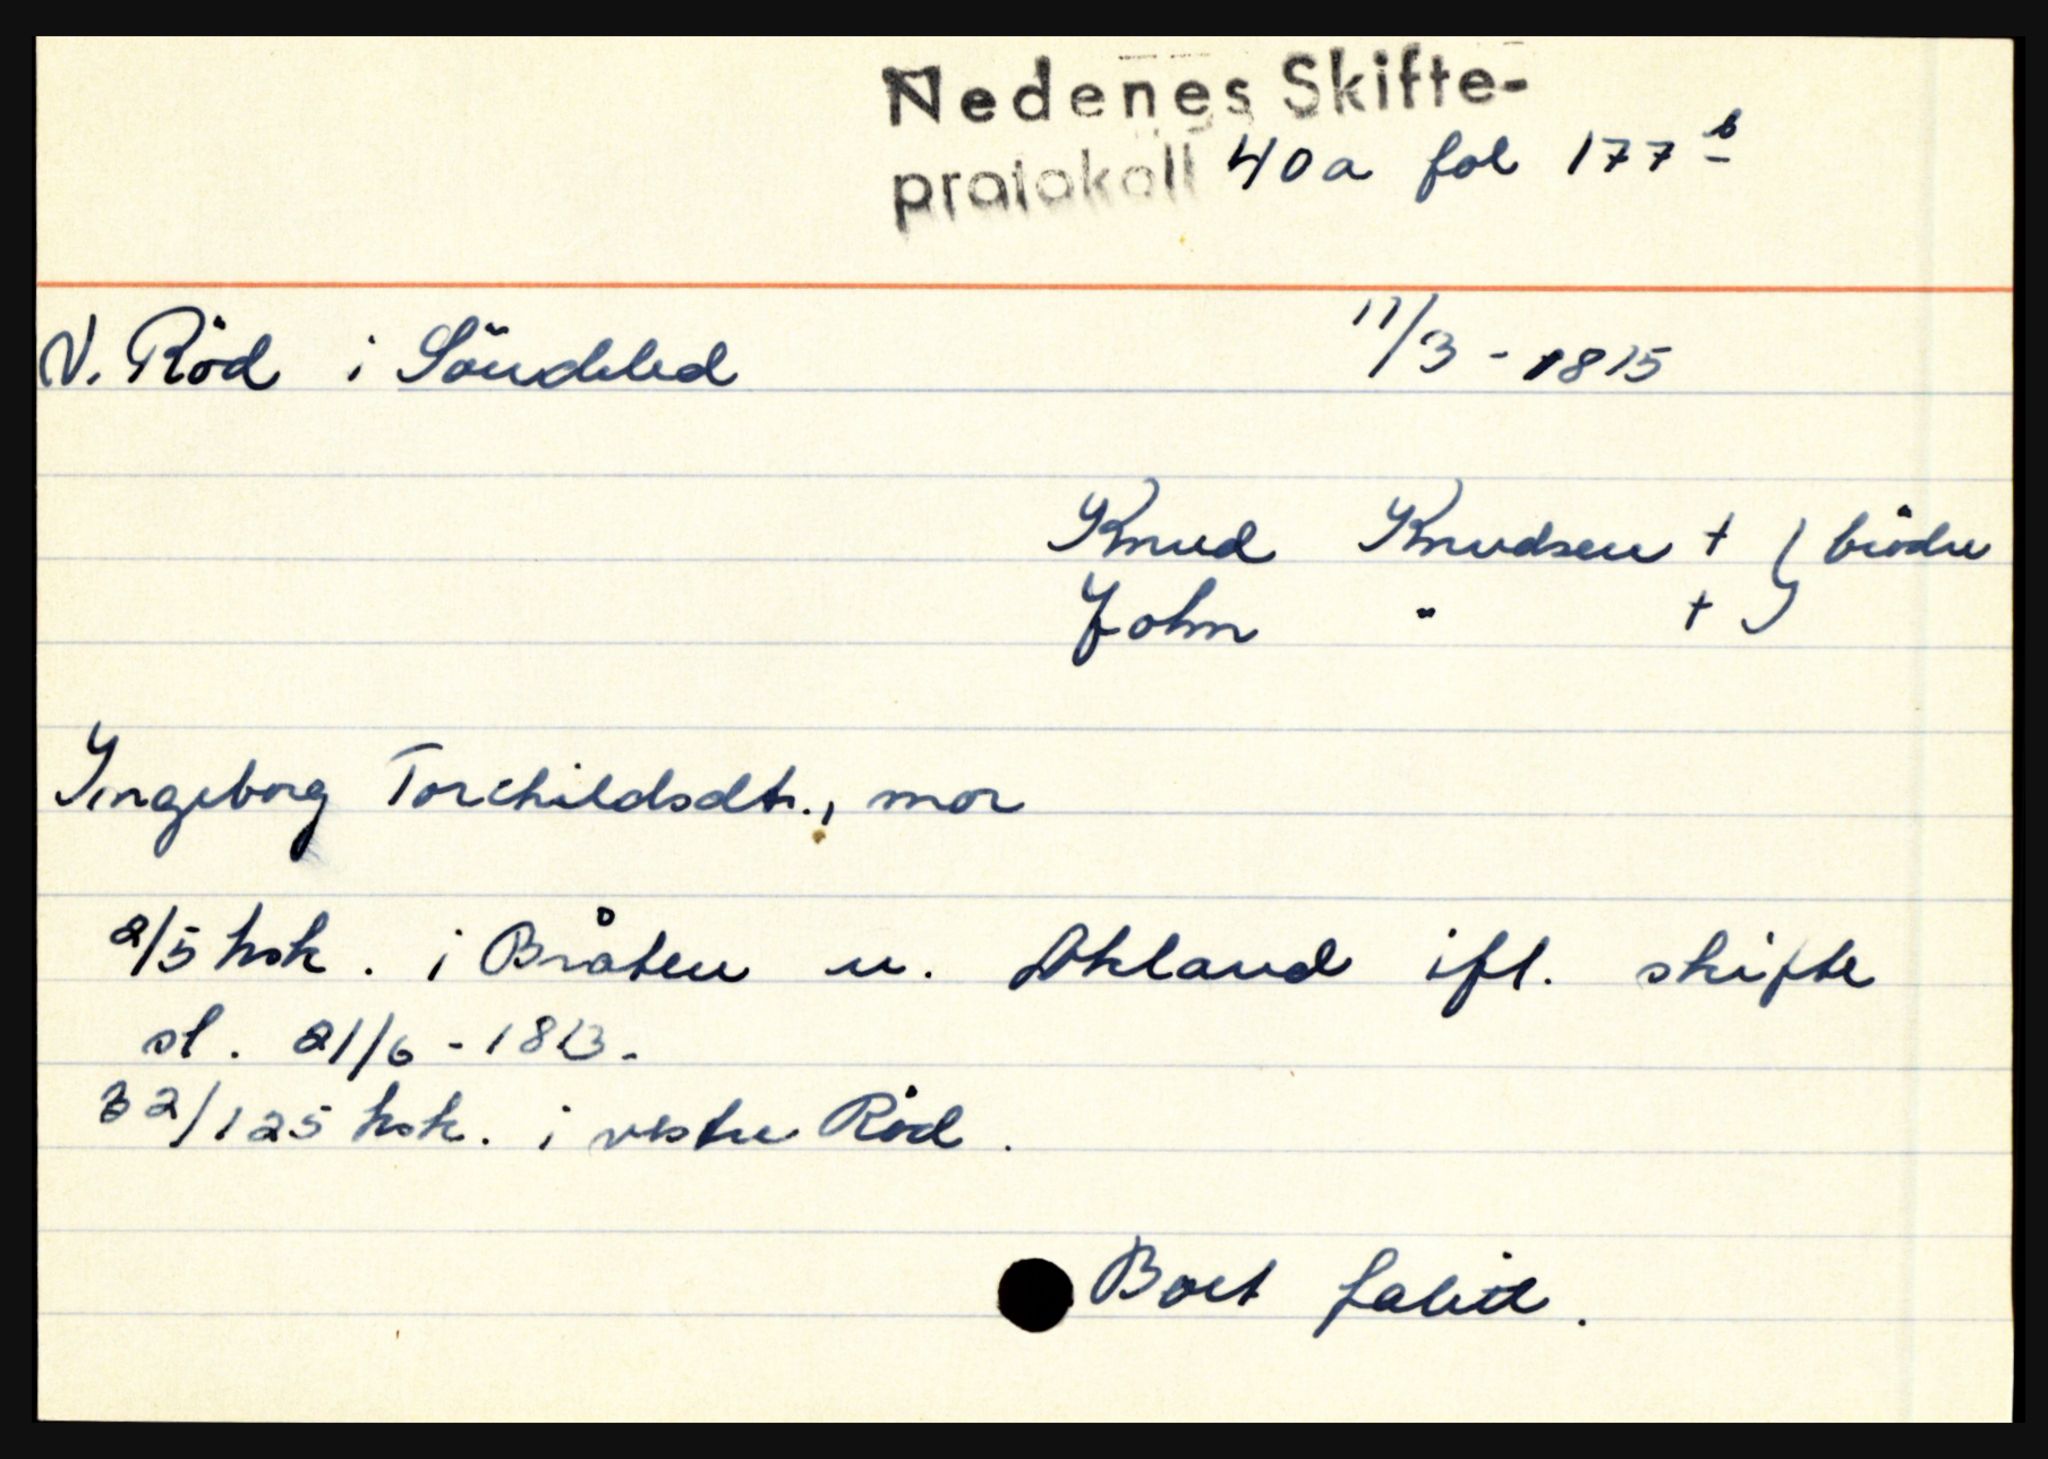 Nedenes Skifte-
protokoll 40a fol 177 b
V. Röd i Söndeled 11/3 - 1815
Knud Knudsen + } brödre
John " +
Ingeborg Torchildsdtr., mor
2/5 hsk. i Bråten u. Akland ifl. skifte
sl. 21/6 - 1813.
32/125 hsk. i vestre Röd.
Boet falitt.